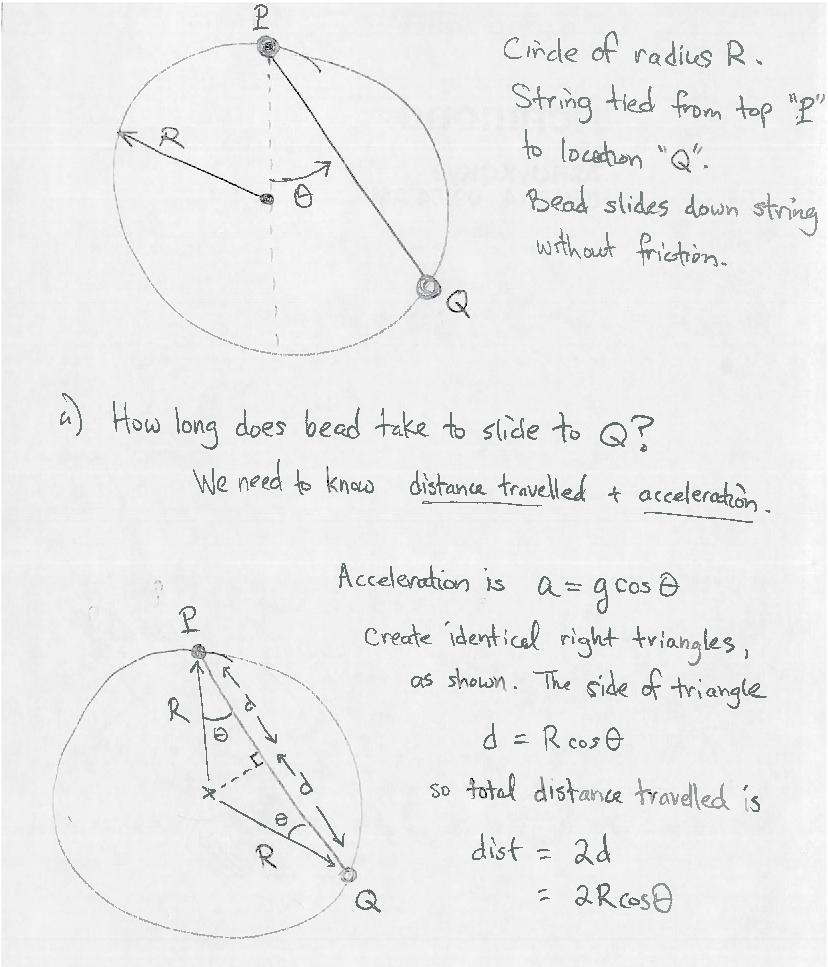 P
Circle of radius R.
String tied from top "P"
to location "Q".
Bead slides down string
without friction.
R
θ
Q
a) How long does bead take to slide to Q?
We need to know distance travelled + acceleration.
Acceleration is a = g cos θ
Create identical right triangles,
as shown. The side of triangle
d = R cos θ
so total distance travelled is
dist = 2d
= 2R cos θ
P
R
θ
d
d
θ
R
Q